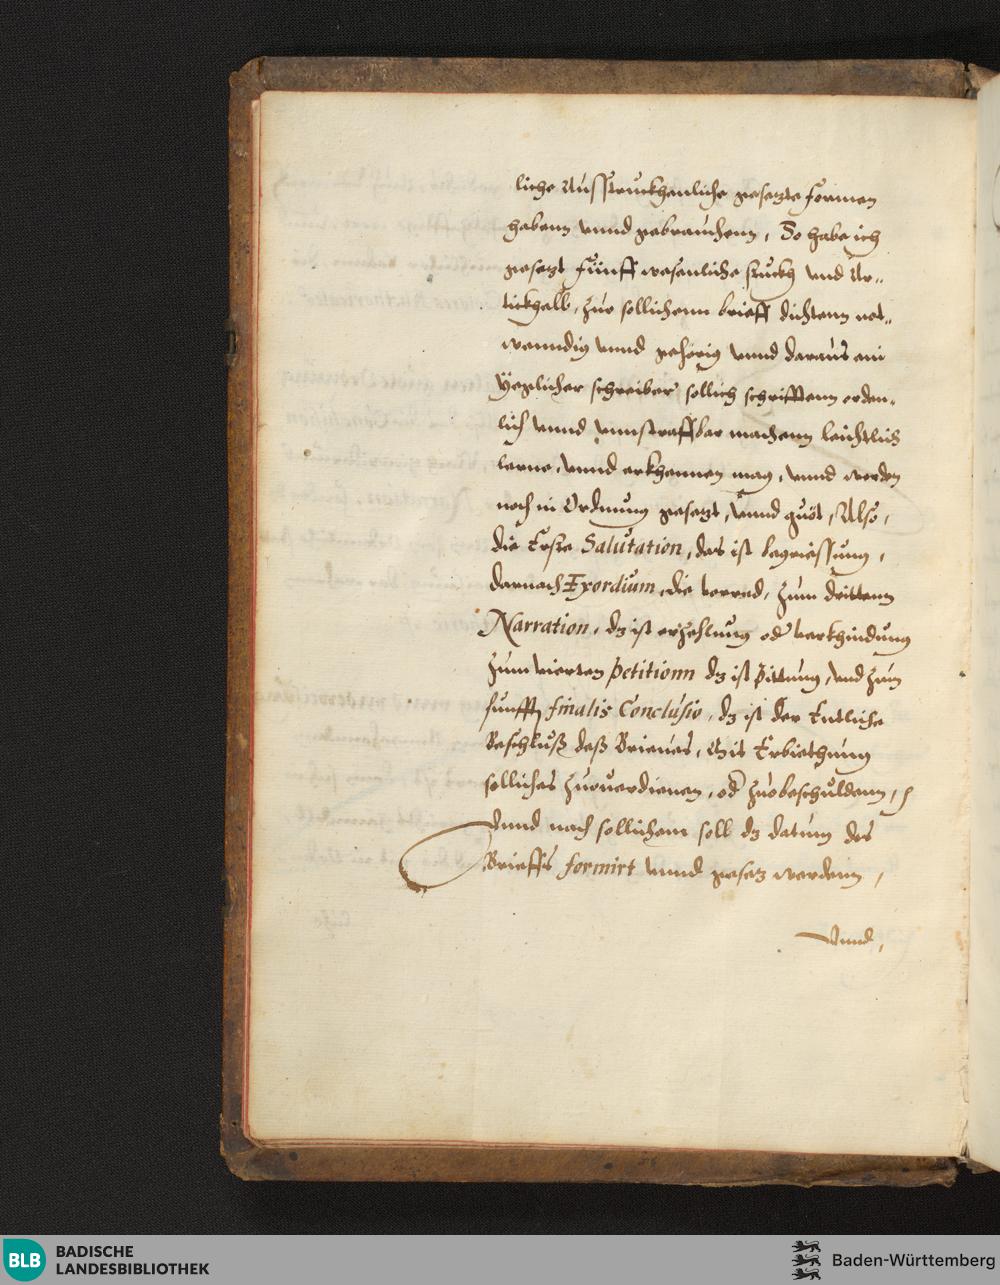 liche Ausstruckhenliche gesetzte formen
habenn vnnd gebrauchenn, So habe ich
gesetzt fünff wesenliche stuckh vnd Ar„
tickhell, zue sollichenn brieff dichtenn not„
wenndig vnnd gehörig vnnd daraus ein
Yegelicher schreiber sollich schrifftenn orden„
lich vnnd vnnstraffbar machenn leichtlich
lerne, vnnd erkhennen mag, vnnd werden
noch in Ordnung gesetzt, vnnd guöt, Also,
die Erste Salutation, das ist begriessung,
darnach Exordium, die vorred, zum drittenn
Narration, dz ist erzehlung oder verkhindung
zum vierten petitionn dz ist pittung, vnd zum
fünfften finalis Conclusio, dz ist der Entliche
Beschluß deß Brieues, Mit Erbiethung
solliches zuouerdienen, oder zuobeschuldenn,
Vnnd nach sollichem soll dz datum des
Brieffs formirt vnnd gesetz werdenn,
Vnnd,
BLB BADISCHE
LANDESBIBLIOTHEK
Baden-Württemberg